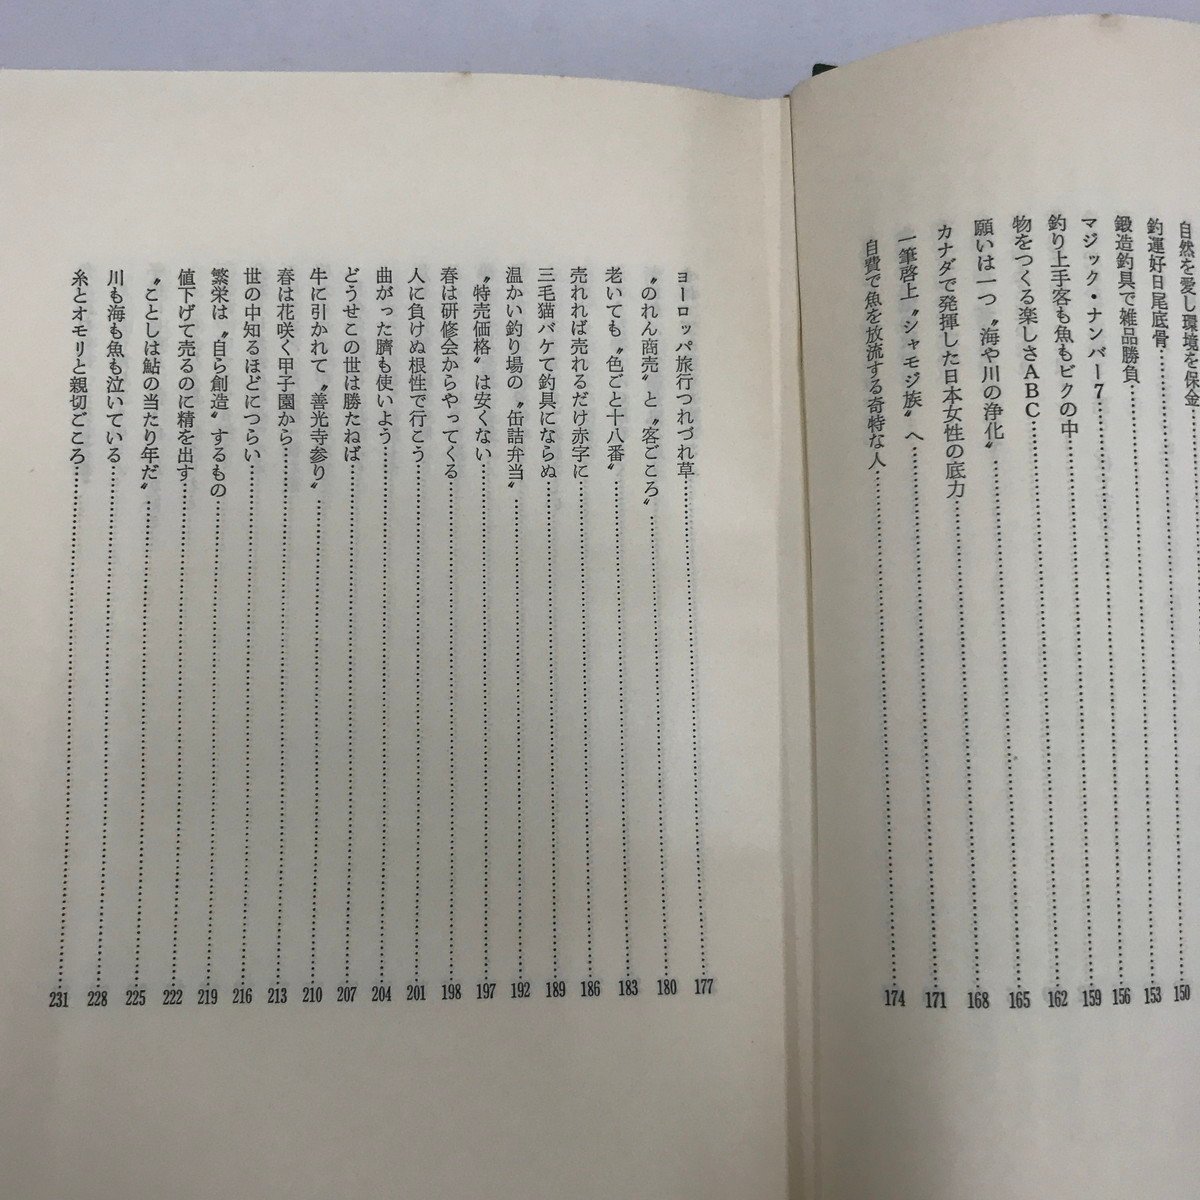 自然を愛し環境を保全……150
釣運好日尾底骨……153
鍛造釣具で雑品勝負……156
マジック・ナンバー7……159
釣り上手客も魚もビクの中……162
物をつくる楽しさABC……165
願いは一つ〝海や川の浄化〟……168
カナダで発揮した日本女性の底力……171
一筆啓上〝シャモジ族〟へ……174
自費で魚を放流する奇特な人……
ヨーロッパ旅行つれづれ草……177
〝のれん商売〟と〝客ごころ〟……180
老いても〝色ごと十八番〟……183
売れれば売れるだけ赤字に……186
三毛猫バケて釣具にならぬ……189
温かい釣り場の〝缶詰弁当〟……192
〝特売価格〟は安くない……197
春は研修会からやってくる……198
人に負けぬ根性で行こう……201
曲がった臍も使いよう……204
どうせこの世は勝たねば……207
牛に引かれて〝善光寺参り〟……210
春は花咲く甲子園から……213
世の中知るほどにつらい……216
繁栄は〝自ら創造〟するもの……219
値下げて売るのに精を出す……222
〝ことしは鮎の当たり年だ〟……225
川も海も魚も泣いている……228
糸とオモリと親切ごころ……231